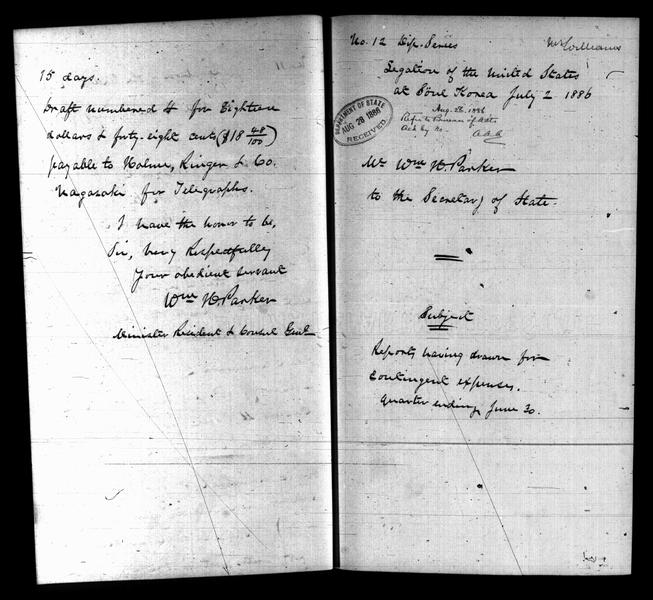 15 days.
Draft numbered 4 for Eighteen
dollars & forty-eight cents ($18 48/100)
payable to Holme, Ringer & Co.
Nagasaki for Telegraphs.
I have the honor to be,
Sir, Very Respectfully
Your obedient servant
Wm H. Parker
Minister Resident & Consul Genl
No. 12 Dip. Series
Legation of the United States
at Söul Korea July 2 1886
DEPARTMENT OF STATE
AUG 28 1886
RECEIVED
Aug. 28, 1886
Ack by No.
Mr Wm H. Parker
to the Secretary of State.
Subject
Reports having drawn for
Contingent expenses.
Quarter ending June 30.